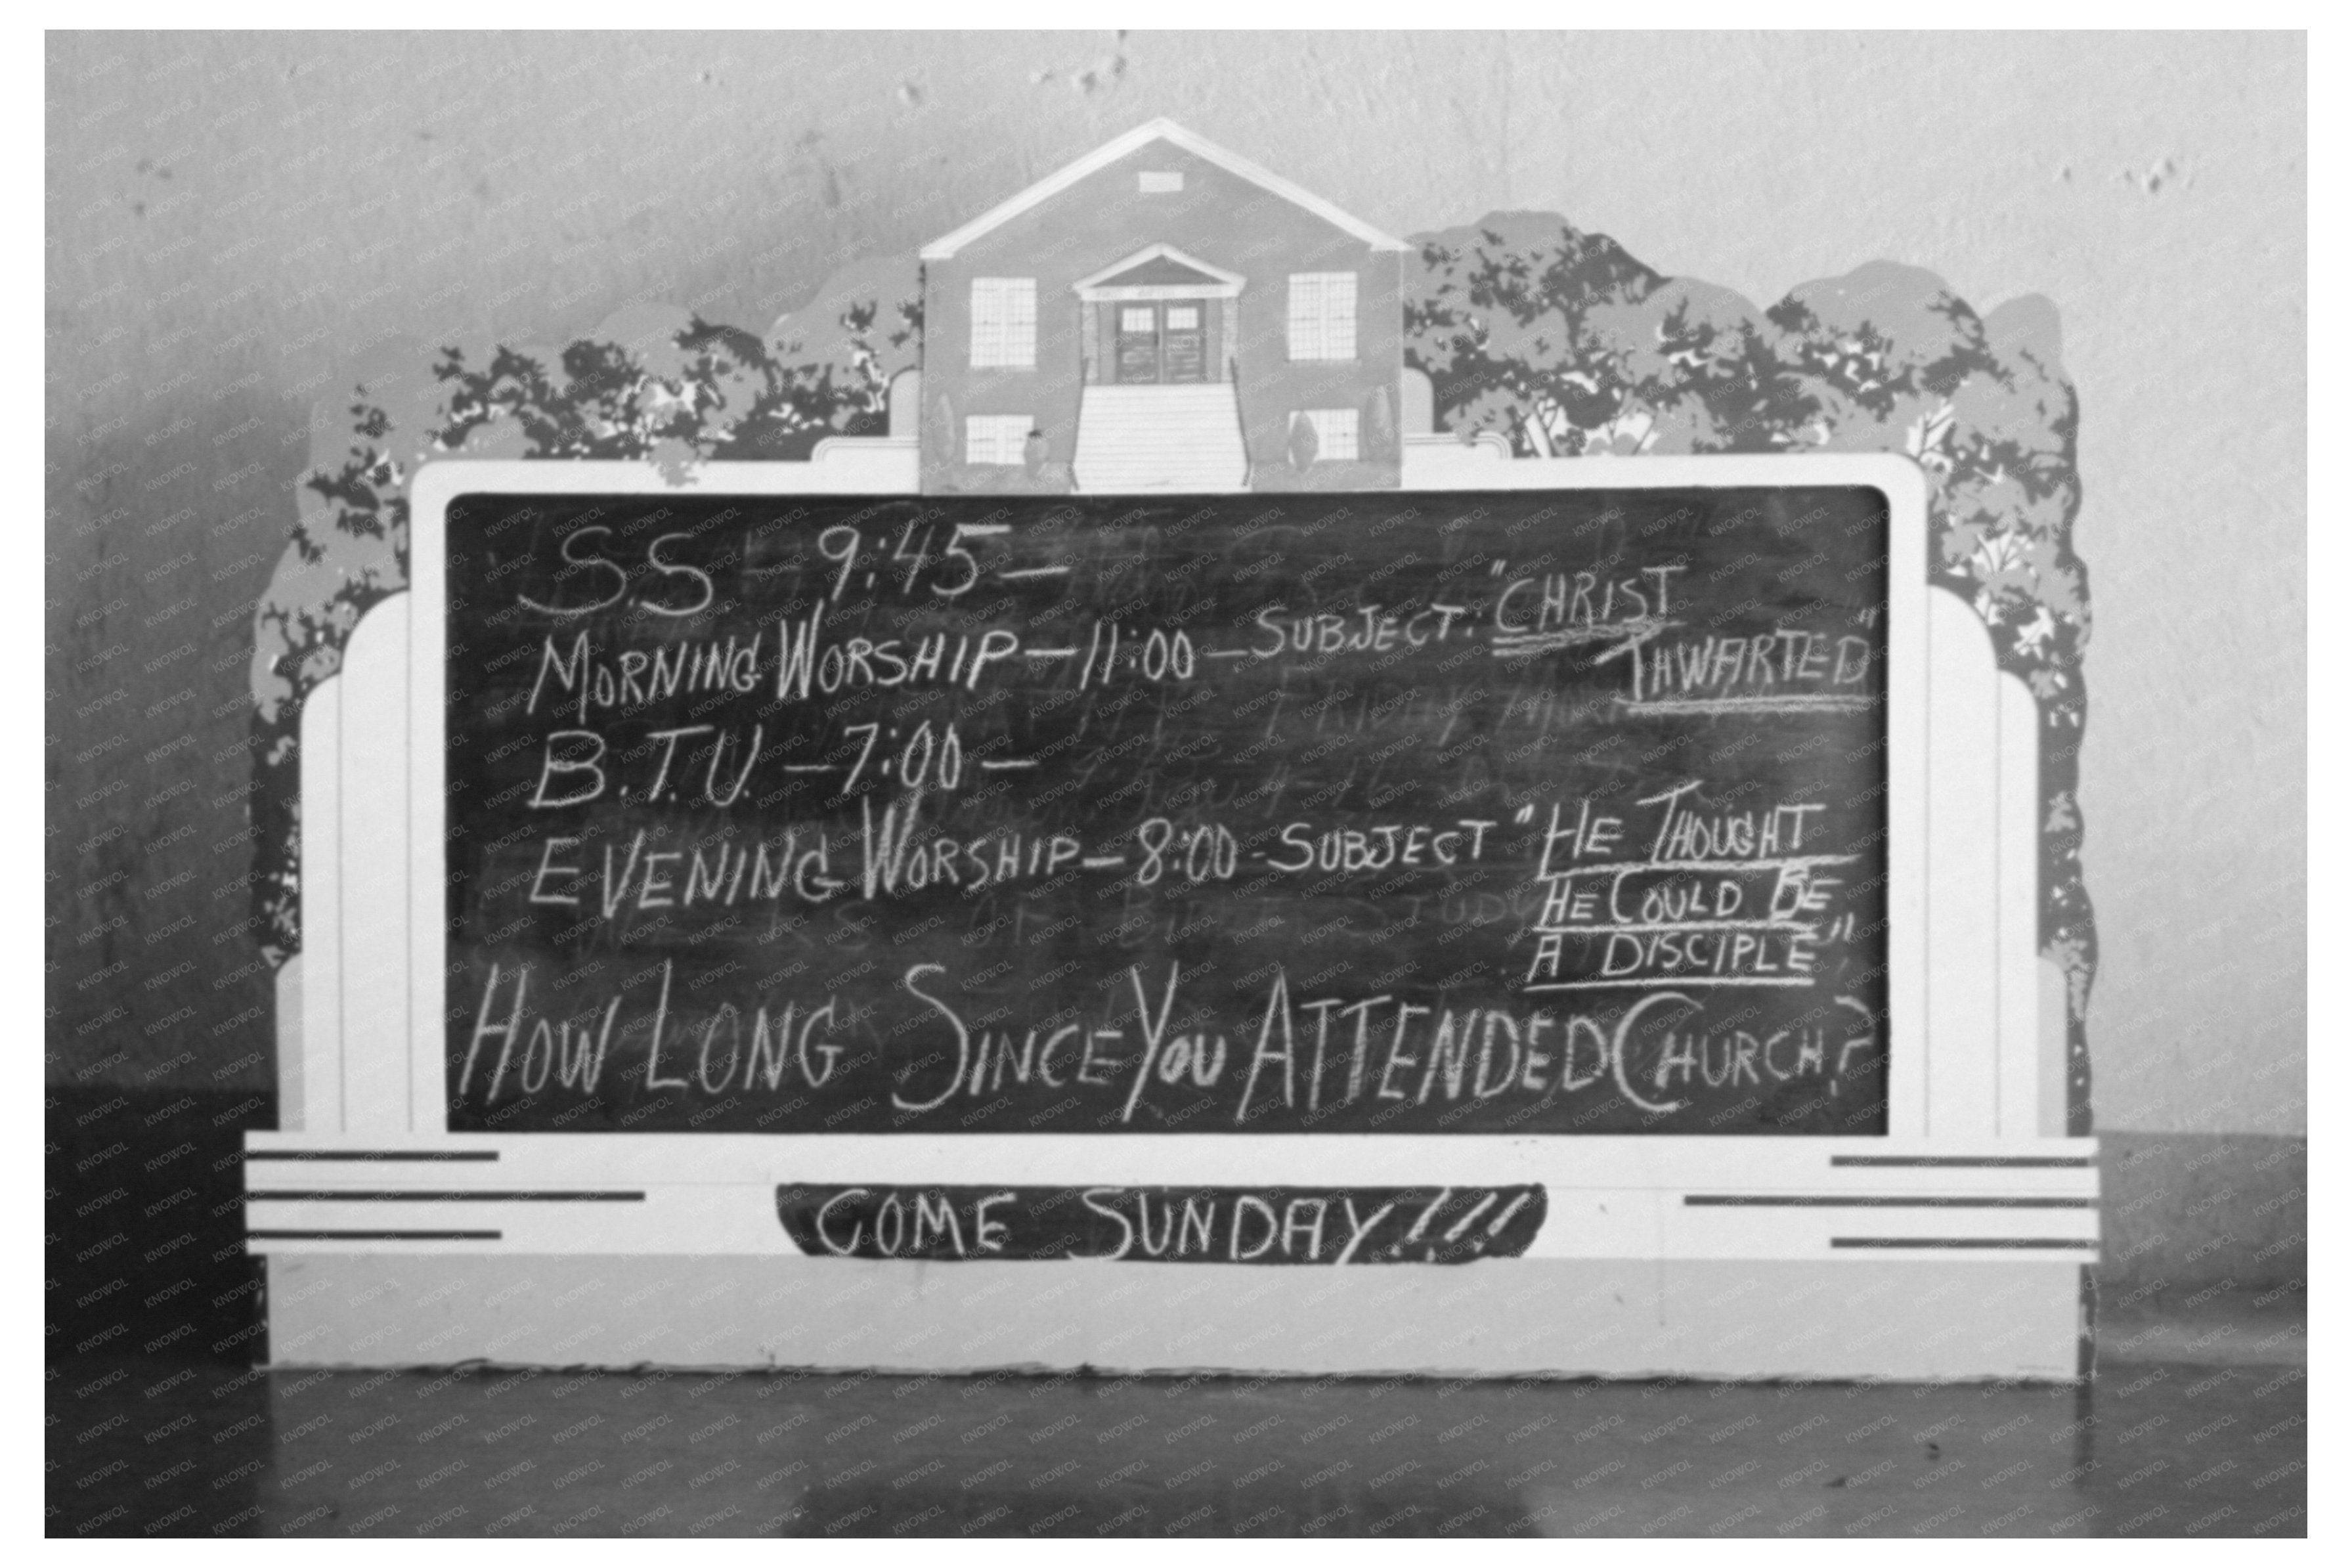 S.S. - 9:45 -
MORNING WORSHIP - 11:00 - SUBJECT: "CHRIST
THWARTED"
B.T.U. - 7:00 -
EVENING WORSHIP - 8:00 - SUBJECT "HE THOUGHT
HE COULD BE
A DISCIPLE"
HOW LONG SINCE YOU ATTENDED CHURCH?
COME SUNDAY!!!
KNOWOL